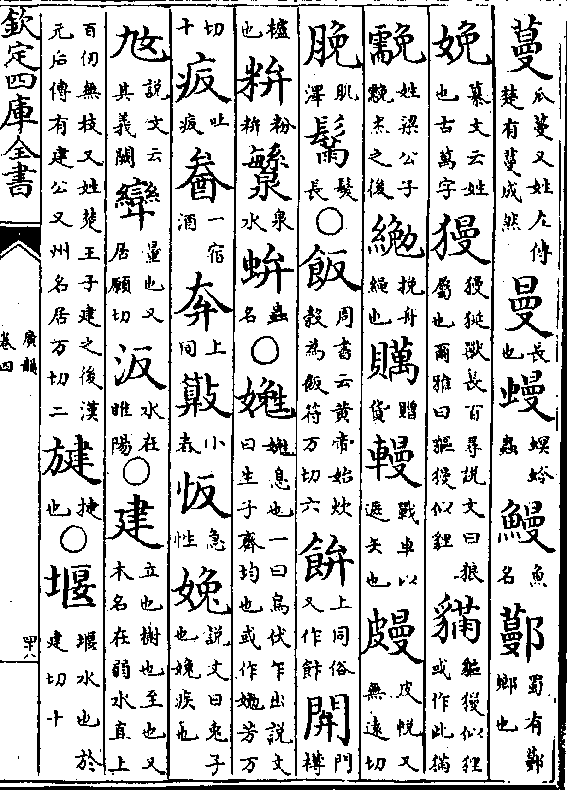 蔓瓜蔓又姓左傳楚有蔓成然曼長也蟃螟蛉蟲鰻魚名鄤蜀有鄤鄉也
娩纂文云姓也古萬字獌獌狿獸長百尋說文曰狼屬也爾雅曰貙獌似貍貙獌似貍或作此
姓梁公子之後䋦挽舟繩也贎贈貨䡬戰車以遮矢也皮悅又無遠切
脕肌澤鬗髮長○飯周書云黃帝始炊穀為飯符万切六餅上同俗又作飰開門欂
櫨也粉泉水蛢蟲名○㜊息也一曰鳥伏乍出說文曰生子齊均也或作芳万
切十疲吐疲一宿酒奔上同小舂急性娩說文曰兔子也娩疾也
說文云其義闕量也又居願切汳水在睢陽○建立也樹也至也又木名在弱水直上
百仞無枝又姓楚王子建之後漢元后傳有建公又州名居万切二旔揵也○堰堰水也於建切十
欽定四庫全書
廣韻
卷四